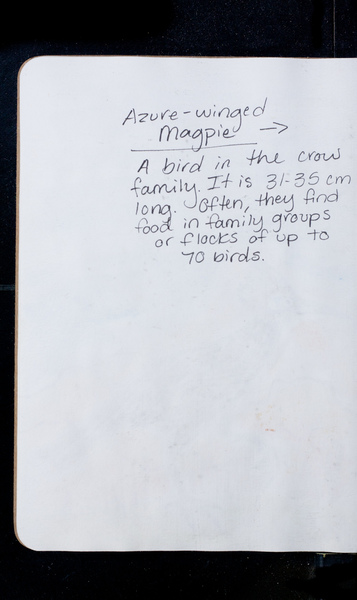 Azure-winged
Magpie →
A bird in the crow
family. It is 31-35 cm
long. Often, they find
food in family groups
or flocks of up to
70 birds.